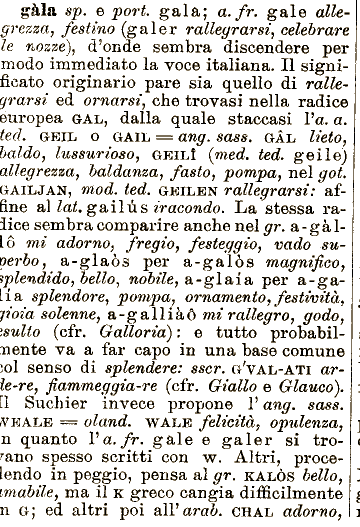 gàla sp. e port. gala; a. fr. gale alle-
grezza, festino (galer rallegrarsi, celebrare
le nozze), d'onde sembra discendere per
modo immediato la voce italiana. Il signi-
ficato originario pare sia quello di ralle-
grarsi ed ornarsi, che trovasi nella radice
europea GAL, dalla quale staccasi l'a. a.
ted. GEIL o GAIL = ang. sass. GÂL lieto,
baldo, lussurioso, GEILÎ (med. ted. geile)
allegrezza, baldanza, fasto, pompa, nel got.
GAILJAN, mod. ted. GEILEN rallegrarsi: af-
fine al lat. gailús iracondo. La stessa ra-
dice sembra comparire anche nel gr. a-gàl-
lô mi adorno, fregio, festeggio, vado su-
perbo, a-glaòs per a-galòs magnifico,
splendido, bello, nobile, a-glaía per a-ga-
lía splendore, pompa, ornamento, festività,
gioia solenne, a-galliàô mi rallegro, godo,
esulto (cfr. Galloria): e tutto probabil-
mente va a far capo in una base comune
col senso di splendere: sscr. G'VAL-ATI ar-
de-re, fiammeggia-re (cfr. Giallo e Glauco).
Il Suchier invece propone l'ang. sass.
WEALE = oland. WALE felicità, opulenza,
in quanto l'a. fr. gale e galer si tro-
vano spesso scritti con w. Altri, proce-
dendo in peggio, pensa al gr. KALÒS bello,
amabile, ma il K greco cangia difficilmente
in G; ed altri poi all'arab. CHAL adorno,